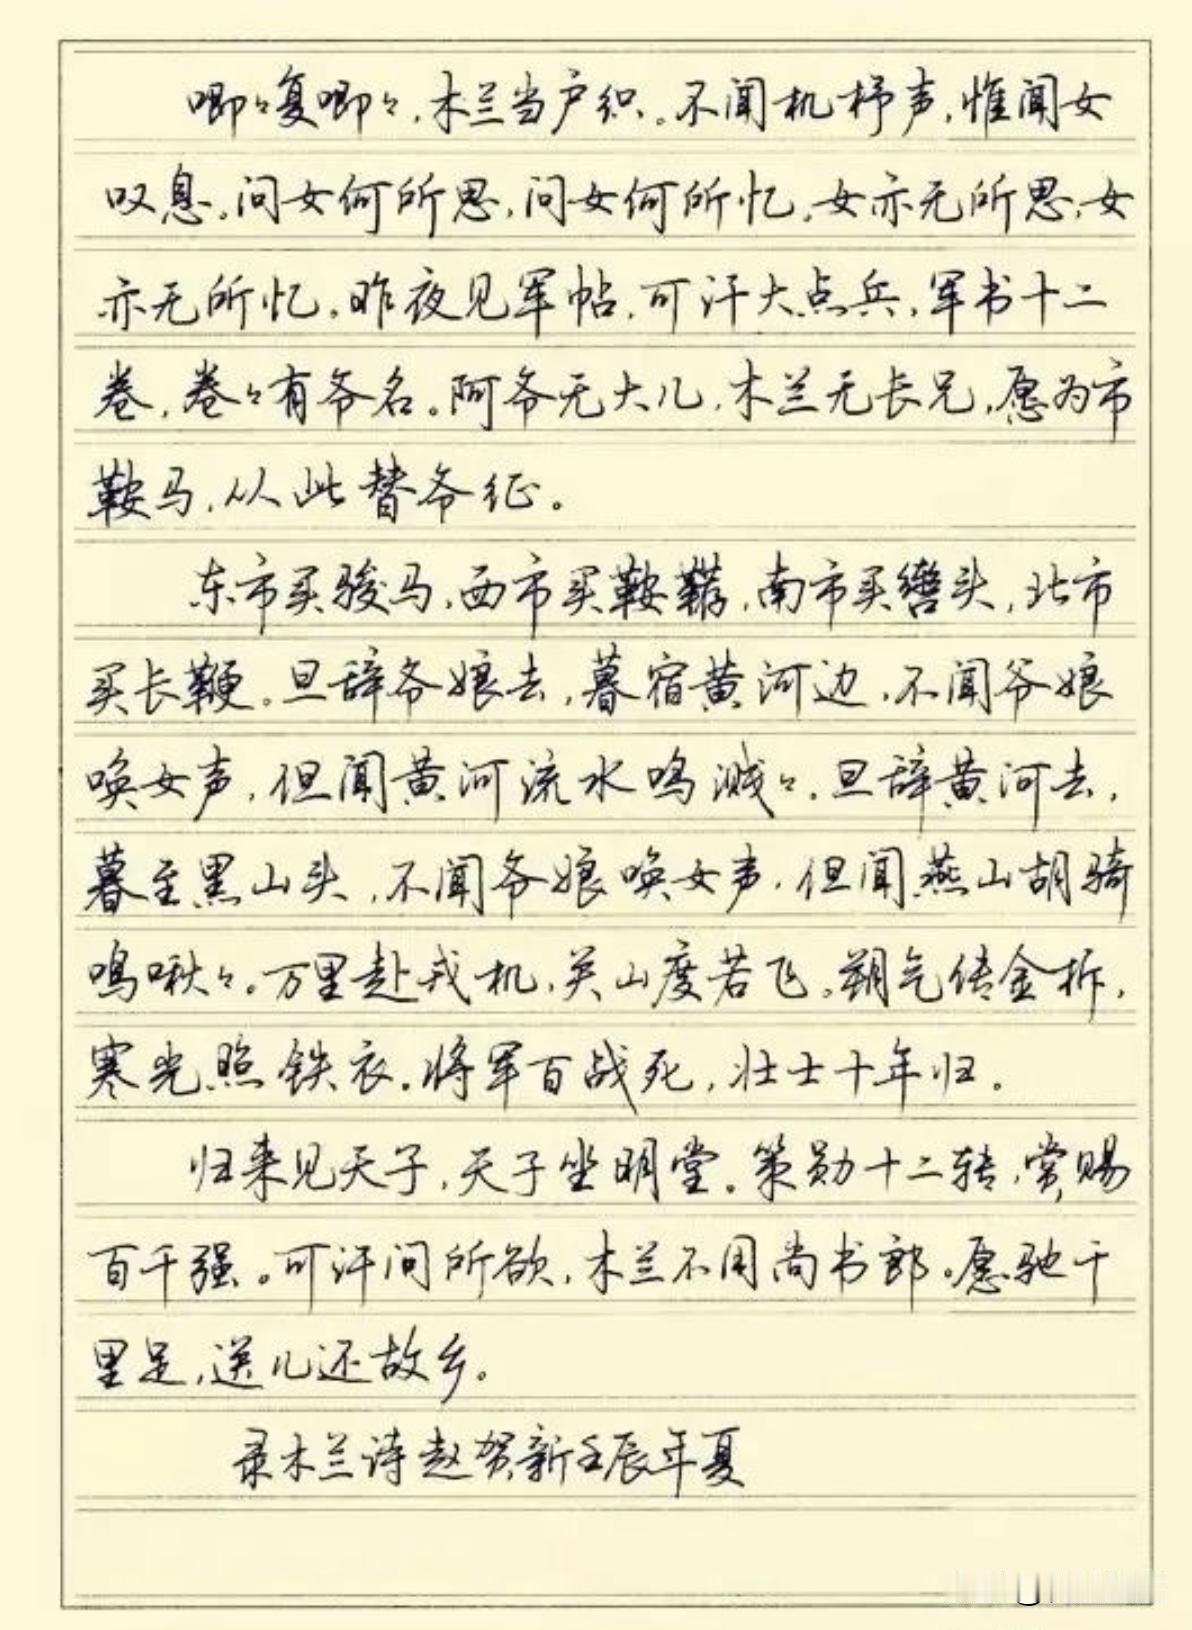 唧々复唧々，木兰当户织。不闻机杼声，惟闻女
叹息。问女何所思，问女何所忆，女亦无所思，女
亦无所忆。昨夜见军帖，可汗大点兵，军书十二
卷，卷々有爷名。阿爷无大儿，木兰无长兄，愿为市
鞍马，从此替爷征。
东市买骏马，西市买鞍鞯，南市买辔头，北市
买长鞭。旦辞爷娘去，暮宿黄河边，不闻爷娘
唤女声，但闻黄河流水鸣溅々。旦辞黄河去，
暮至黑山头，不闻爷娘唤女声，但闻燕山胡骑
鸣啾々。万里赴戎机，关山度若飞。朔气传金柝，
寒光照铁衣。将军百战死，壮士十年归。
归来见天子，天子坐明堂。策勋十二转，赏赐
百千强。可汗问所欲，木兰不用尚书郎。愿驰千
里足，送儿还故乡。
录木兰诗赵贺新壬辰年夏